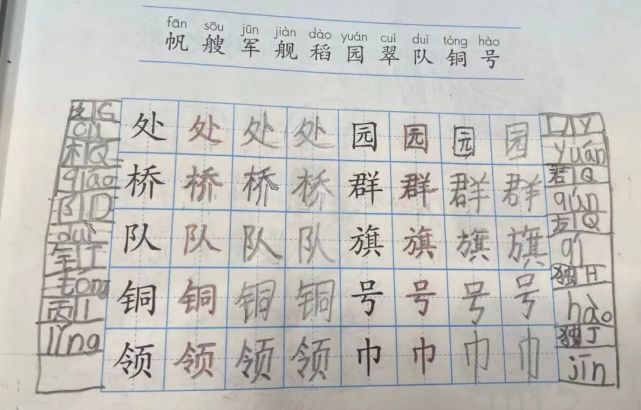 fān sōu jūn jiàn dào yuán cuì duì tóng hào
帆 艘 军 舰 稻 园 翠 队 铜 号
处 处 处 处 园 园 园 园
yuán
桥 桥 桥 桥 群 群 群 群
qiáo
qún
队 队 队 队 旗 旗 旗 旗
duì
qí
铜 铜 铜 铜 号 号 号 号
tong
hào
领 领 领 领 巾 巾 巾 巾
jīn